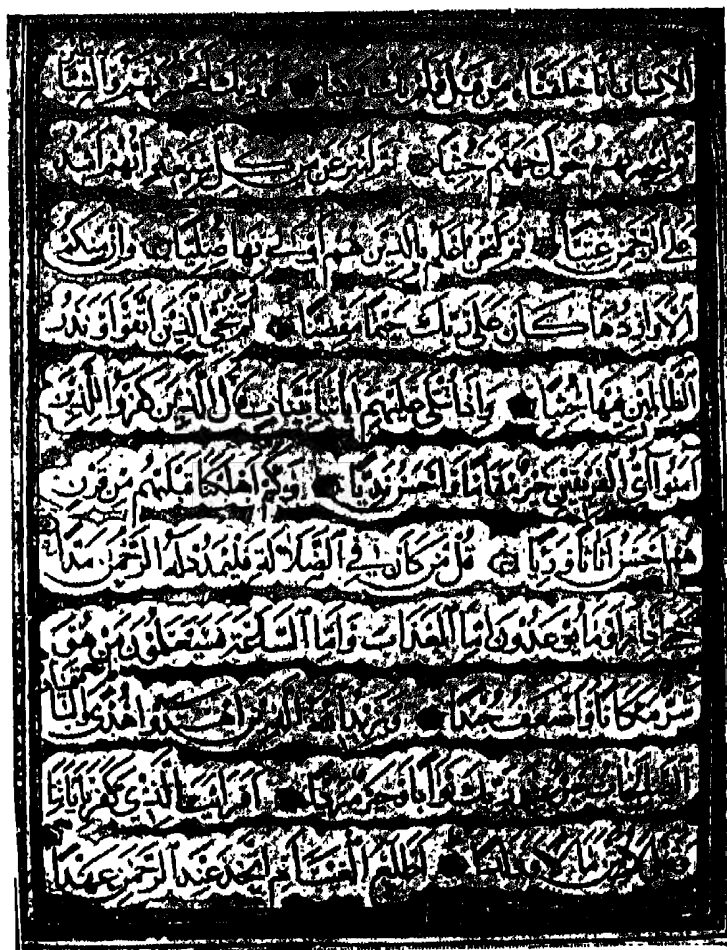 الانسان انا خلقناه من قبل ولم يك شيئا فوربك لنحشرنهم والشياطين
ثم لنحضرنهم حول جهنم جثيا ثم لننزعن من كل شيعة ايهم اشد
على الرحمن عتيا ثم لنحن اعلم بالذين هم اولى بها صليا وان منكم
الا واردها كان على ربك حتما مقضيا ثم ننجي الذين اتقوا ونذر
الظالمين فيها جثيا واذا تتلى عليهم اياتنا بينات قال الذين كفروا للذين
امنوا اي الفريقين خير مقاما واحسن نديا وكم اهلكنا قبلهم من قرن
هم احسن اثاثا ورءيا قل من كان في الضلالة فليمدد له الرحمن مدا
حتى اذا راوا ما يوعدون اما العذاب واما الساعة فسيعلمون من هو
شر مكانا واضعف جندا ويزيد الله الذين اهتدوا هدى والباقيات
الصالحات خير عند ربك ثوابا وخير مردا افرايت الذي كفر باياتنا
وقال لاوتين مالا وولدا اطلع الغيب ام اتخذ عند الرحمن عهدا